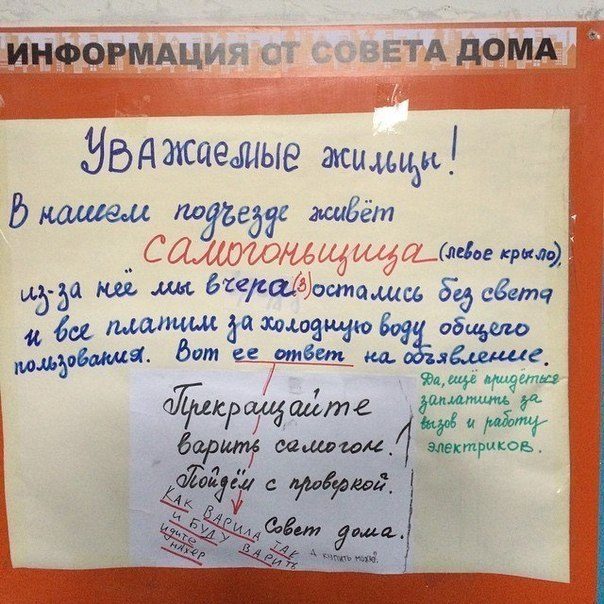 ИНФОРМАЦИЯ ОТ СОВЕТА ДОМА
Уважаемые жильцы!
В нашем подъезде живёт
самогоньщица (левое крыло),
из-за неё мы вчера (3) остались без света
и все платим за холодную воду общего
пользования. Вот ее ответ на объявление.
Да, ещё придёться
заплатить за
вызов и работу
электриков.
Прекращайте
варить самогон!
Пойдём с проверкой.
Совет дома.
КАК ВАРИЛА ТАК
И БУДУ ВАРИТЬ
ИДИТЕ
НАХЕР
А купить можно?